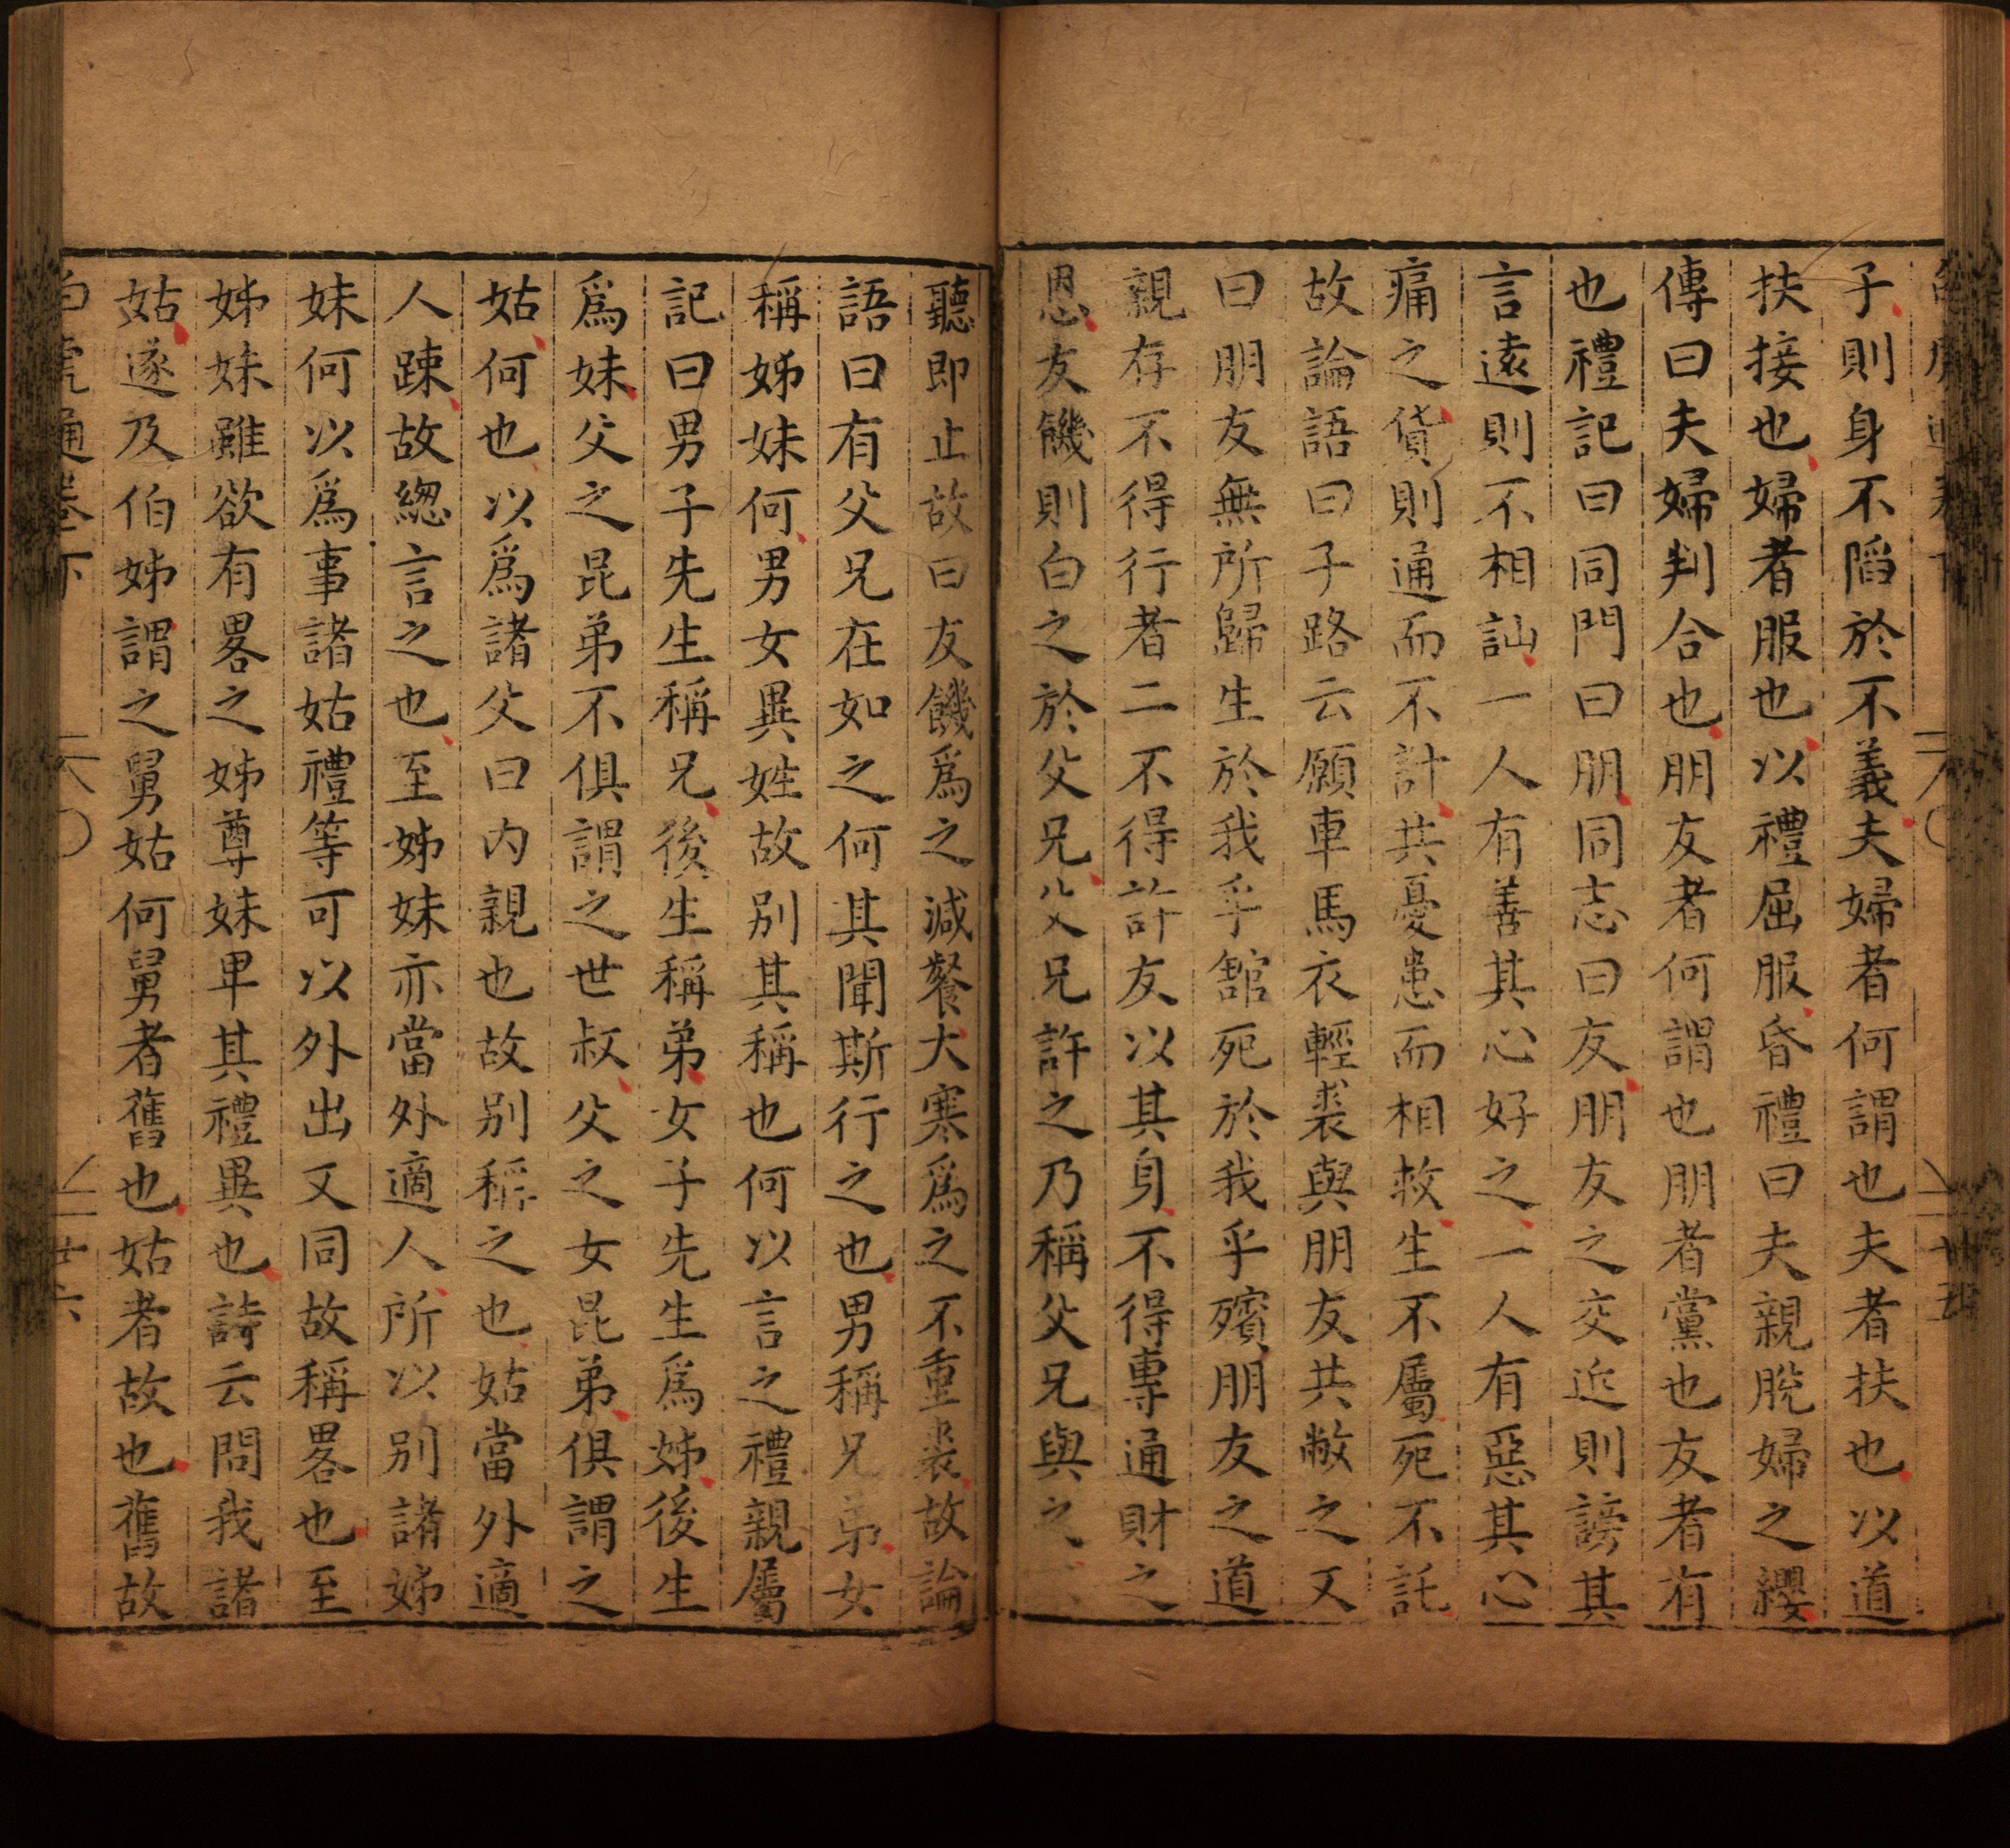 子則身不䧟於不義夫婦者何謂也夫者扶也以道
扶接也婦者服也以禮屈服昏禮曰夫親脫婦之纓
傳曰夫婦判合也朋友者何謂也朋者黨也友者有
也禮記曰同門曰朋同志曰友朋友之交近則謗其
言遠則不相訕一人有善其心好之一人有惡其心
痛之貨則通而不計共憂患而相救生不屬死不託
故論語曰子路云願車馬衣輕裘與朋友共敝之又
曰朋友無所歸生於我乎舘死於我乎殯朋友之道
親存不得行者二不得許友以其身不得專通財之
恩友饑則白之於父兄父兄許之乃稱父兄與之
聽即止故曰友饑爲之減餐大寒爲之不重裘故論
語曰有父兄在如之何其聞斯行之也男稱兄弟女
稱姊妹何男女異姓故別其稱也何以言之禮親屬
記曰男子先生稱兄後生稱弟女子先生爲姊後生
爲妹父之昆弟不俱謂之世叔父之女昆弟俱謂之
姑何也以爲諸父曰內親也故別稱之也姑當外適
人踈故緫言之也至姊妹亦當外適人所以別諸姊
妹何以爲事諸姑禮等可以外出又同故稱畧也至
姊妹雖欲有畧之姊尊妹卑其禮異也詩云問我諸
姑遂及伯姊謂之舅姑何舅者舊也姑者故也舊故
白虎通卷下 廿六